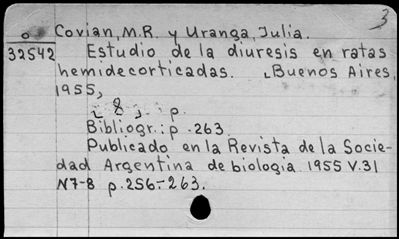 3
o Covian, M.R. y Uranga, Julia.
32542 Estudio de la diuresis en ratas
hemidecorticadas. [Buenos Aires,
1955,
[8]. p.
Bibliogr.: p. 263
Publicado en la Revista de la Socie-
dad Argentina de biologia 1955 V.31
N7-8 p.256-263.